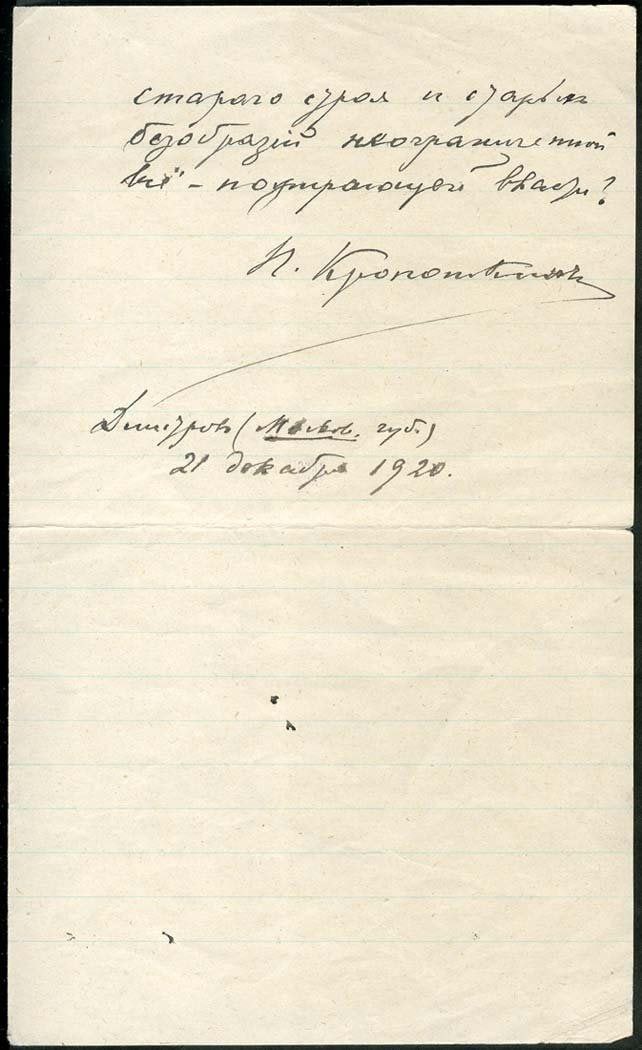 стараго строя и старыхъ
безобразій неограниченной
всё-попирающей власти?
П. Кропоткинъ
Дмитров (Москов. губ.)
21 декабря 1920.